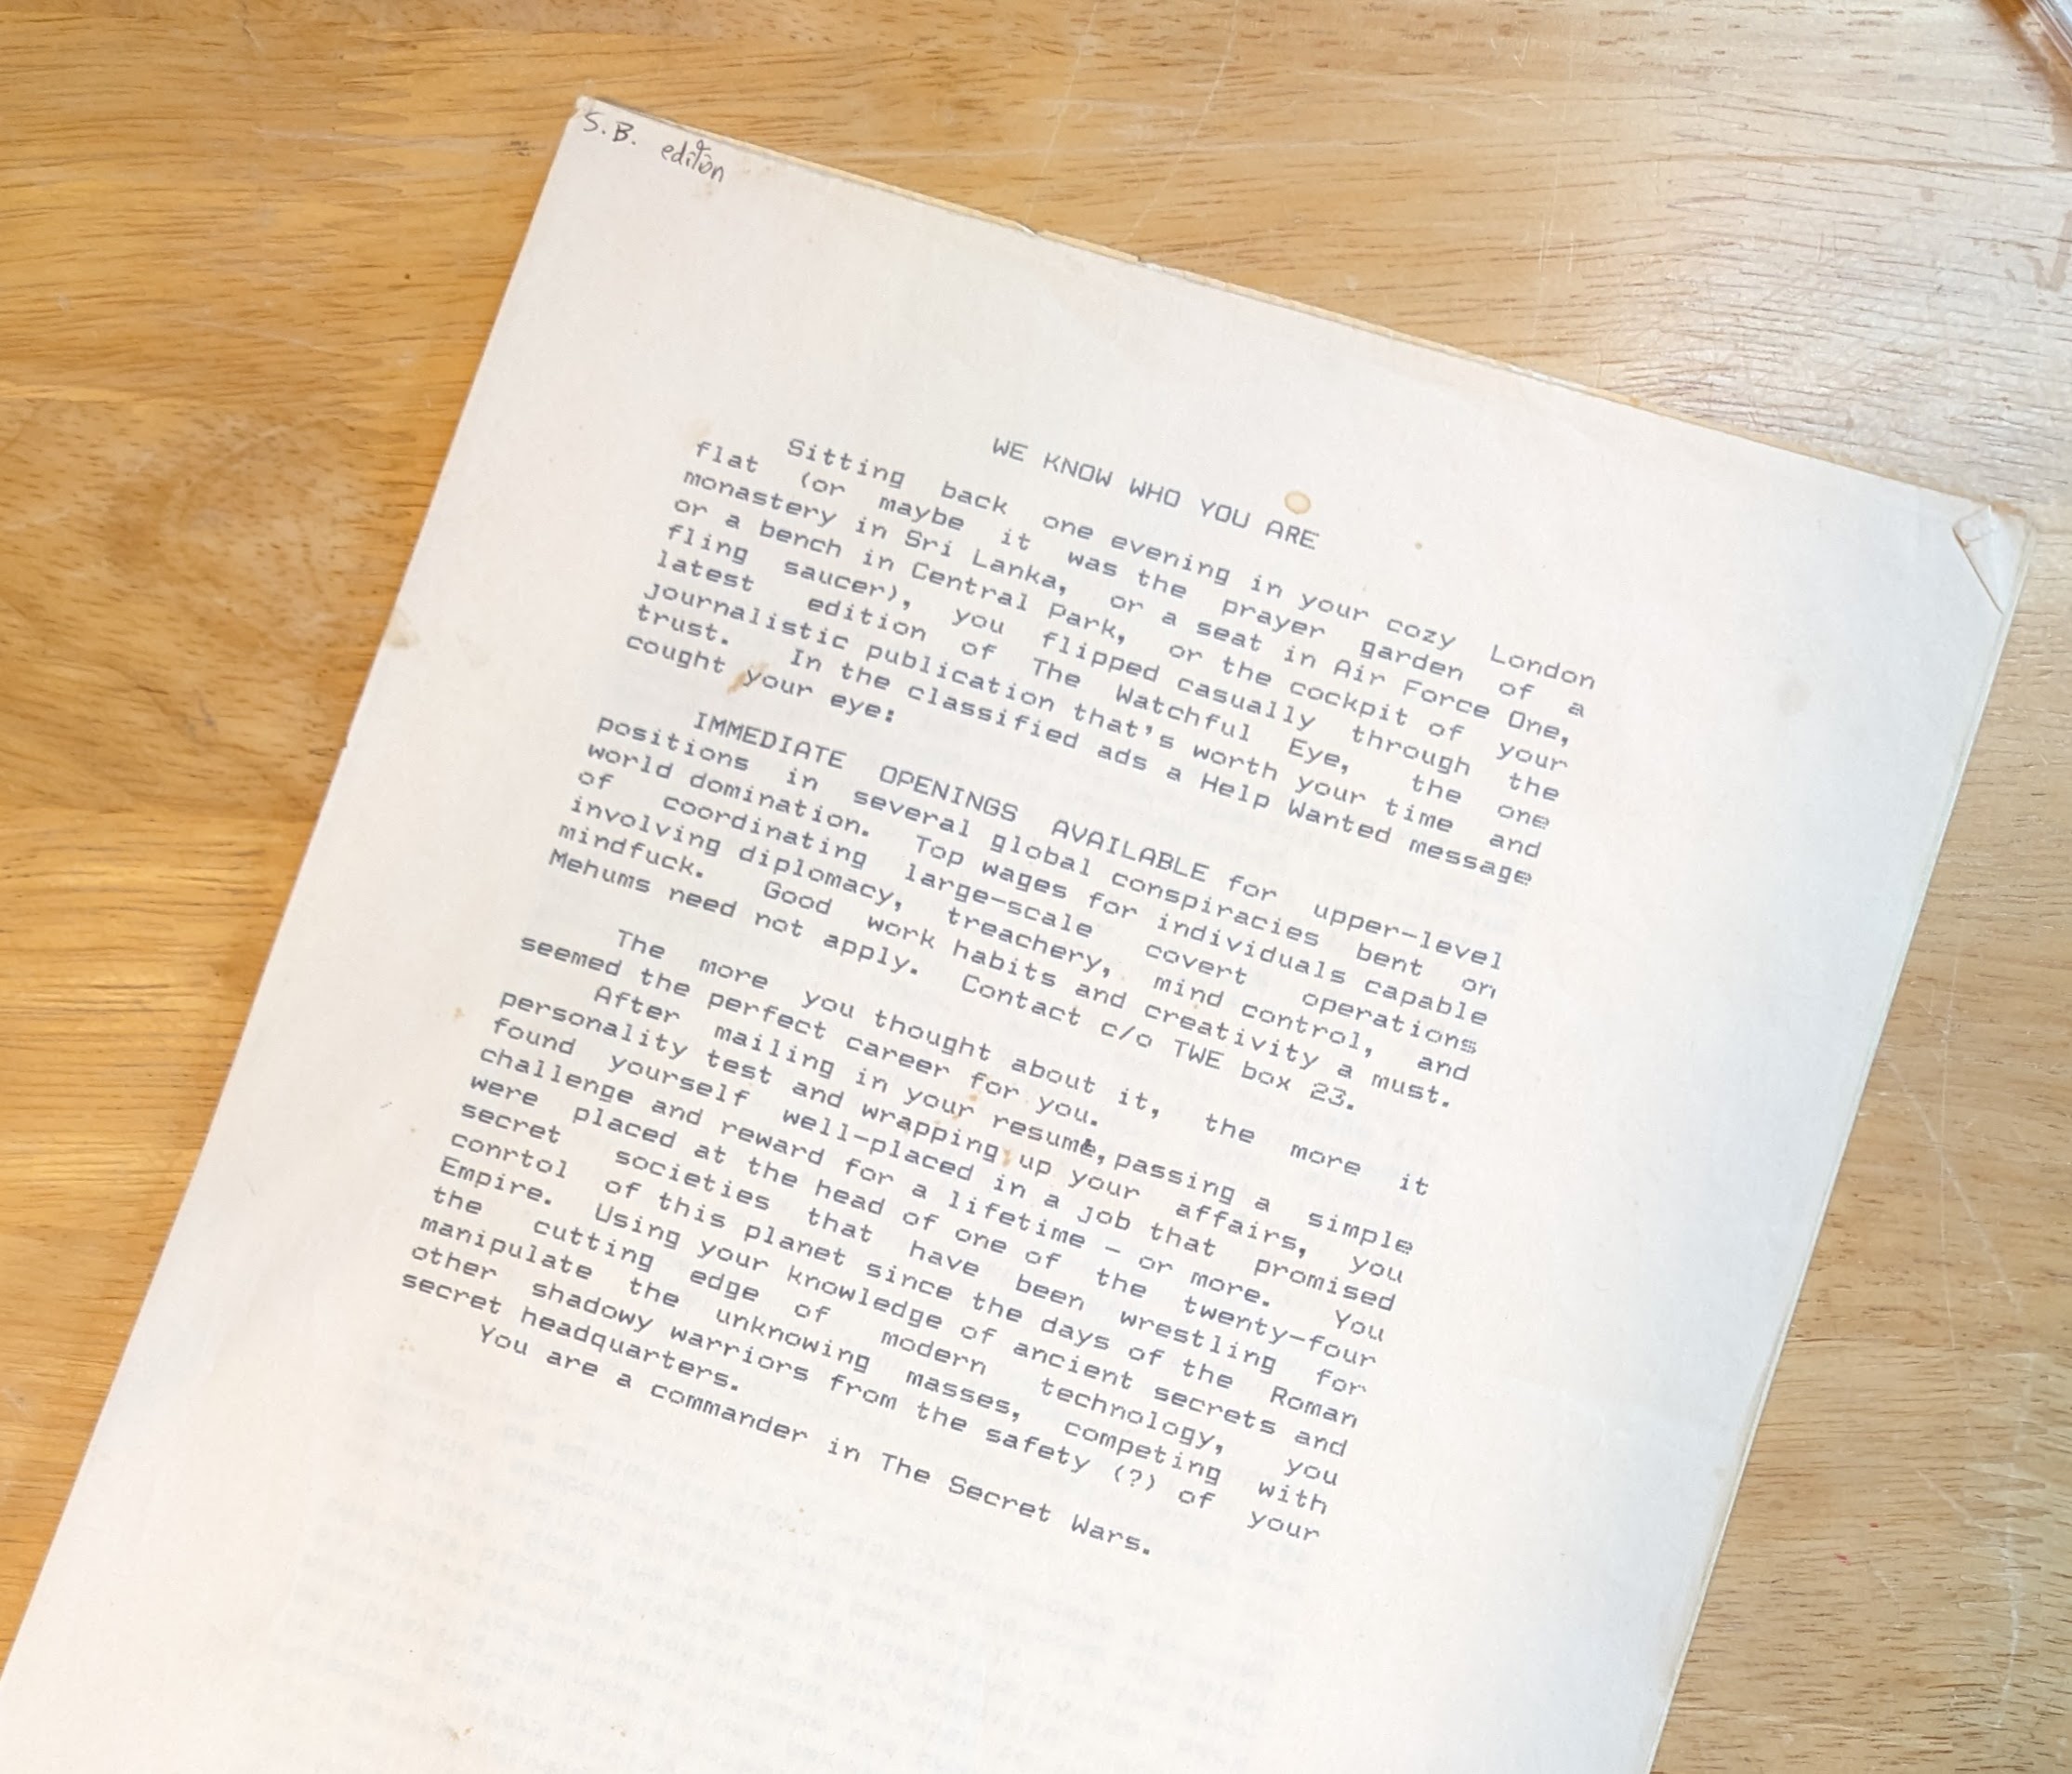 S.B. edition
WE KNOW WHO YOU ARE
Sitting back one evening in your cozy London
flat (or maybe it was the prayer garden of a
monastery in Sri Lanka, or a seat in Air Force One,
or a bench in Central Park, or the cockpit of your
fling saucer), you flipped casually through the
latest edition of The Watchful Eye, the one
journalistic publication that's worth your time and
trust. In the classified ads a Help Wanted message
cought your eye:
IMMEDIATE OPENINGS AVAILABLE for upper-level
positions in several global conspiracies bent on
world domination. Top wages for individuals capable
of coordinating large-scale covert operations
involving diplomacy, treachery, mind control, and
mindfuck. Good work habits and creativity a must.
Mehums need not apply. Contact c/o TWE box 23.
The more you thought about it, the more it
seemed the perfect career for you.
After mailing in your resume, passing a simple
personality test and wrapping up your affairs, you
found yourself well-placed in a job that promised
challenge and reward for a lifetime - or more. You
were placed at the head of one of the twenty-four
secret societies that have been wrestling for
conrtol of this planet since the days of the Roman
Empire. Using your knowledge of ancient secrets and
the cutting edge of modern technology, you
manipulate the unknowing masses, competing with
other shadowy warriors from the safety (?) of your
secret headquarters.
You are a commander in The Secret Wars.